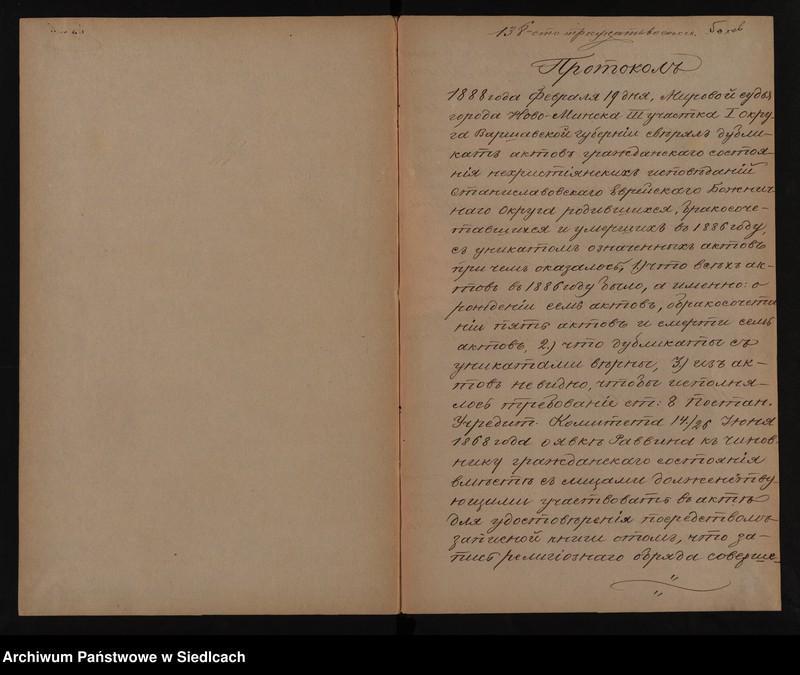 138-сто тридцать восемь.
Протоколъ
1888 года Февраля 19 дня, Мировой судья
города Ново-Минска III участка I окру-
га Варшавской губерніи свѣрялъ дубли-
катъ актовъ гражданскаго состоя-
нія нехристіянскихъ исповѣданій
Станиславовскаго Еврейскаго Божнич-
наго Округа родившихся, бракосоче-
тавшихся и умершихъ въ 1886 году,
съ уникатомъ означенныхъ актовъ
при чемъ оказалось, 1) что всѣхъ ак-
товъ въ 1886 году было, а именно: о
рожденіи семь актовъ, о бракосочета
ніи пять актовъ и смерти семь
актовъ, 2.) что дубликаты съ
уникатами вѣрны, 3) изъ ак-
товъ не видно, чтобы исполня-
лось требованіе ст: 8 Постан.
Учредит. Комитета 14/26 Іюня
1868 года о явкѣ Раввина къ чинов-
нику гражданскаго состоянія
вмѣстѣ съ лицами долженству
ющими участвовать въ актѣ
для удостовѣренія посредствомъ
записной книги о томъ, что за-
пись религіознаго обряда соверших-
Archiwum Państwowe w Siedlcach